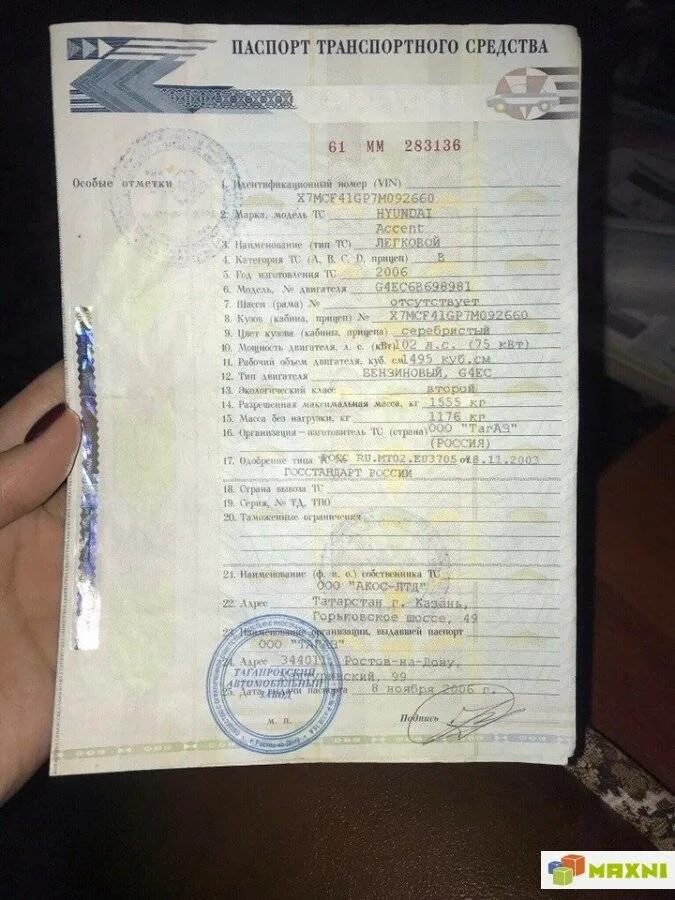 ПАСПОРТ ТРАНСПОРТНОГО СРЕДСТВА
61 ММ 283136
Особые отметки
1. Идентификационный номер (VIN)
X7MCF41GP7M092660
2. Марка, модель ТС HYUNDAI
Accent
3. Наименование (тип ТС) ЛЕГКОВОЙ
4. Категория ТС (A, B, C, D, прицеп) B
5. Год изготовления ТС 2006
6. Модель, № двигателя G4EC6B698981
7. Шасси (рама) № отсутствует
8. Кузов (кабина, прицеп) № X7MCF41GP7M092660
9. Цвет кузова (кабины, прицепа) серебристый
10. Мощность двигателя, л. с. (кВт) 102 л.с. (75 кВт)
11. Рабочий объем двигателя, куб. см 1495 куб.см
12. Тип двигателя БЕНЗИНОВЫЙ, G4EC
13. Экологический класс второй
14. Разрешенная максимальная масса, кг 1555 кг
15. Масса без нагрузки, кг 1176 кг
16. Организация—изготовитель ТС (страна) ООО "ТагАЗ"
(РОССИЯ)
17. Одобрение типа РОСС RU.MT02.E03705 от 18.11.2003
ГОССТАНДАРТ РОССИИ
18. Страна вывоза ТС
19. Серия, № ТД, ТПО
20. Таможенные ограничения
21. Наименование (ф. и. о.) собственника ТС
ООО "АКОС-ЛТД"
22. Адрес Татарстан г. Казань,
Горьковское шоссе, 49
23. Наименование организации, выдавшей паспорт
ООО "ТАГАЗ"
24. Адрес 34401 Ростов-на-Дону,
99
25. Дата выдачи паспорта 8 ноября 2006 г.
ТАГАНРОГСКИЙ
АВТОМОБИЛЬНЫЙ
ЗАВОД
г.Ростов-на-Дону
М. П.
Подпись
MAXNI